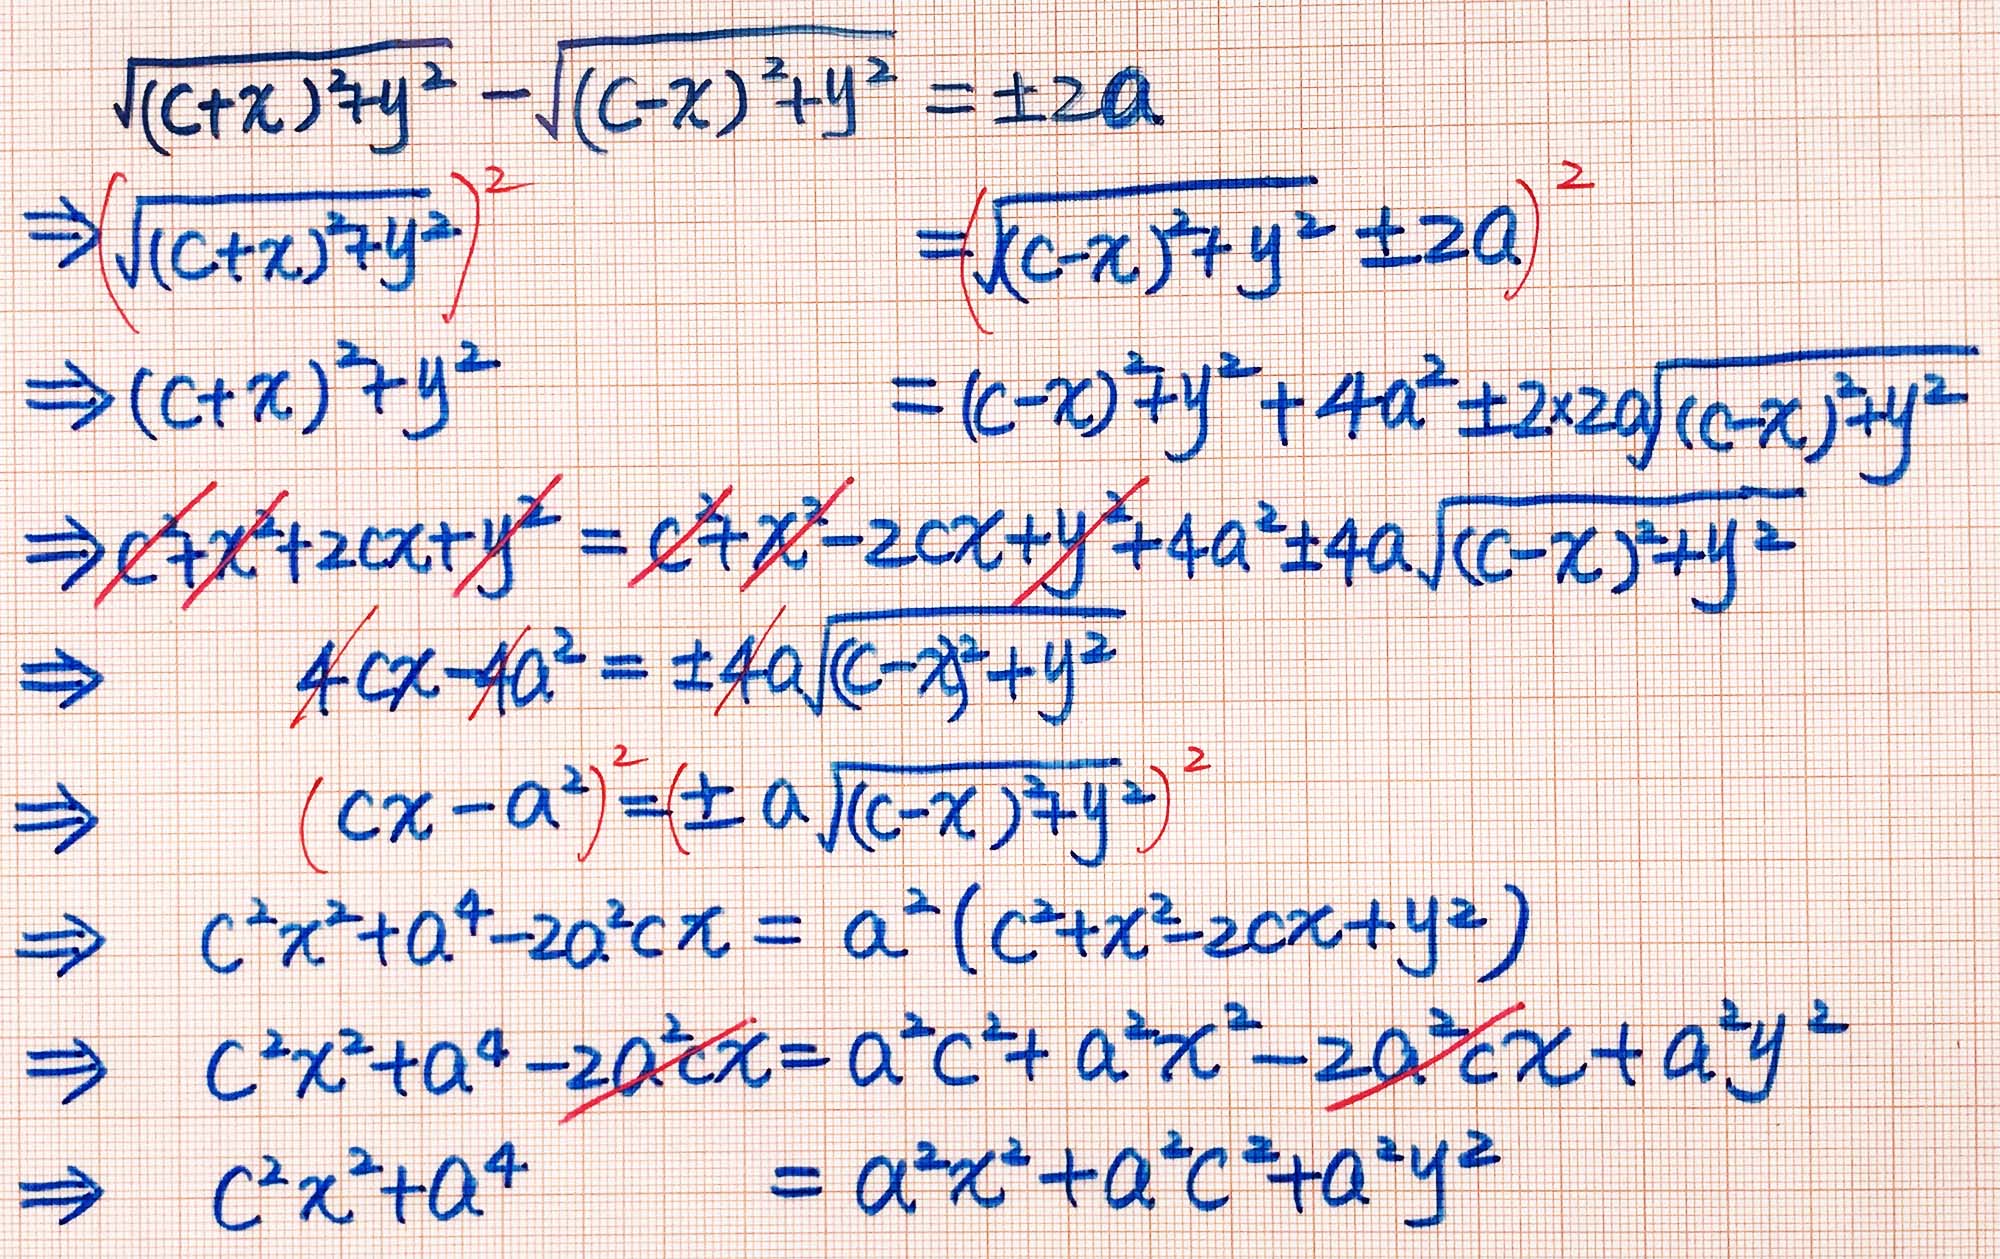 √((c+x)²+y²) - √((c-x)²+y²) = ±2a
⇒ (√((c+x)²+y²))² = (√((c-x)²+y²) ±2a)²
⇒ (c+x)²+y² = (c-x)²+y²+4a²±2×2a√((c-x)²+y²)
⇒ c²+x²+2cx+y² = c²+x²-2cx+y²+4a²±4a√((c-x)²+y²)
⇒ 4cx-4a² = ±4a√((c-x)²+y²)
⇒ (cx-a²)² = (± a√((c-x)²+y²))²
⇒ c²x²+a⁴-2a²cx = a²(c²+x²-2cx+y²)
⇒ c²x²+a⁴-2a²cx = a²c²+a²x²-2a²cx+a²y²
⇒ c²x²+a⁴ = a²x²+a²c²+a²y²